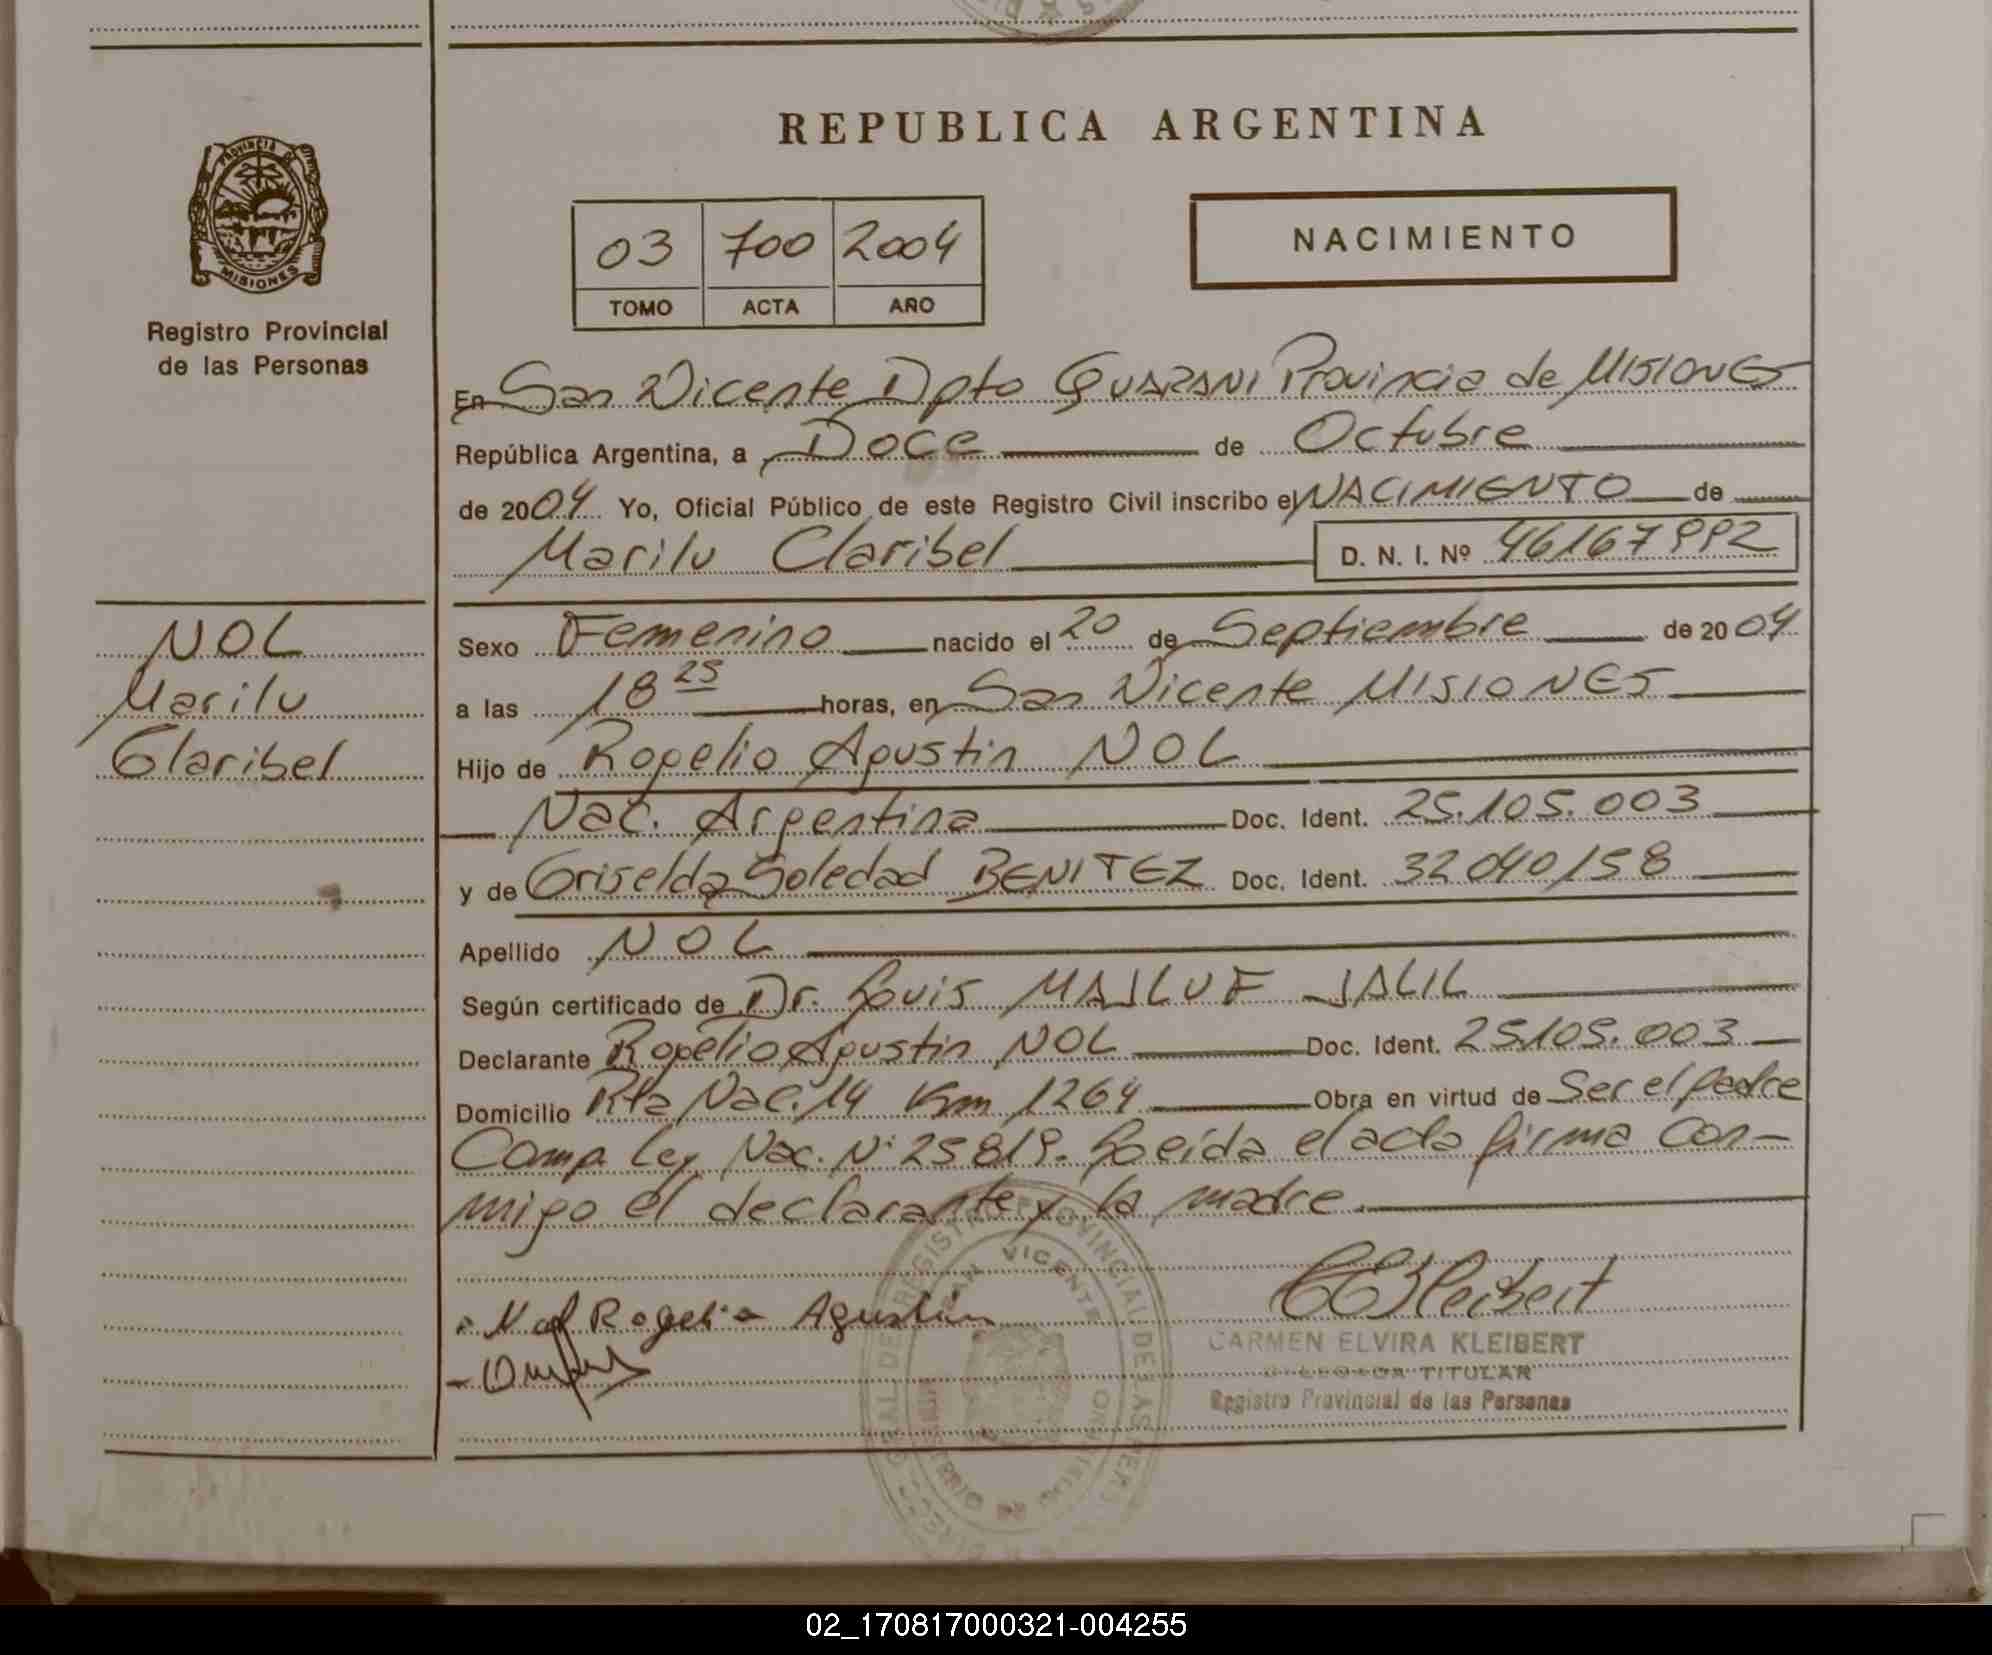 REPUBLICA ARGENTINA
PROVINCIA DE
MISIONES
Registro Provincial
de las Personas
NOL
Marilu
Claribel
03 700 2004
TOMO ACTA AÑO
NACIMIENTO
En San Vicente Dpto GUARANI Provincia de MISIONES
República Argentina, a DOCE de Octubre
de 2004 Yo, Oficial Público de este Registro Civil inscribo el NACIMIENTO de
Marilu Claribel D. N. I. Nº 46167992
Sexo Femenino nacido el 20 de Septiembre de 2004
a las 18 25 horas, en San Vicente MISIONES
Hijo de Rogelio Agustin NOL
Nac. Argentina Doc. Ident. 25.105.003
y de Griselda Soledad BENITEZ Doc. Ident. 32040158
Apellido NOL
Según certificado de Dr. Louis MAJLUF JALIL
Declarante Rogelio Agustin NOL Doc. Ident. 25.105.003
Domicilio Rta Nac. 14 Km 1264 Obra en virtud de Ser el padre
Comp. Ley Nac. Nº 25819. Leída el acta firma con-
migo el declarante y la madre
Nol Rogelio Agustin
CEKleibert
CARMEN ELVIRA KLEIBERT
TITULAR
Registro Provincial de las Personas
REGISTRO PROVINCIAL DE LAS PERS
SAN VICENTE
02_170817000321-004255